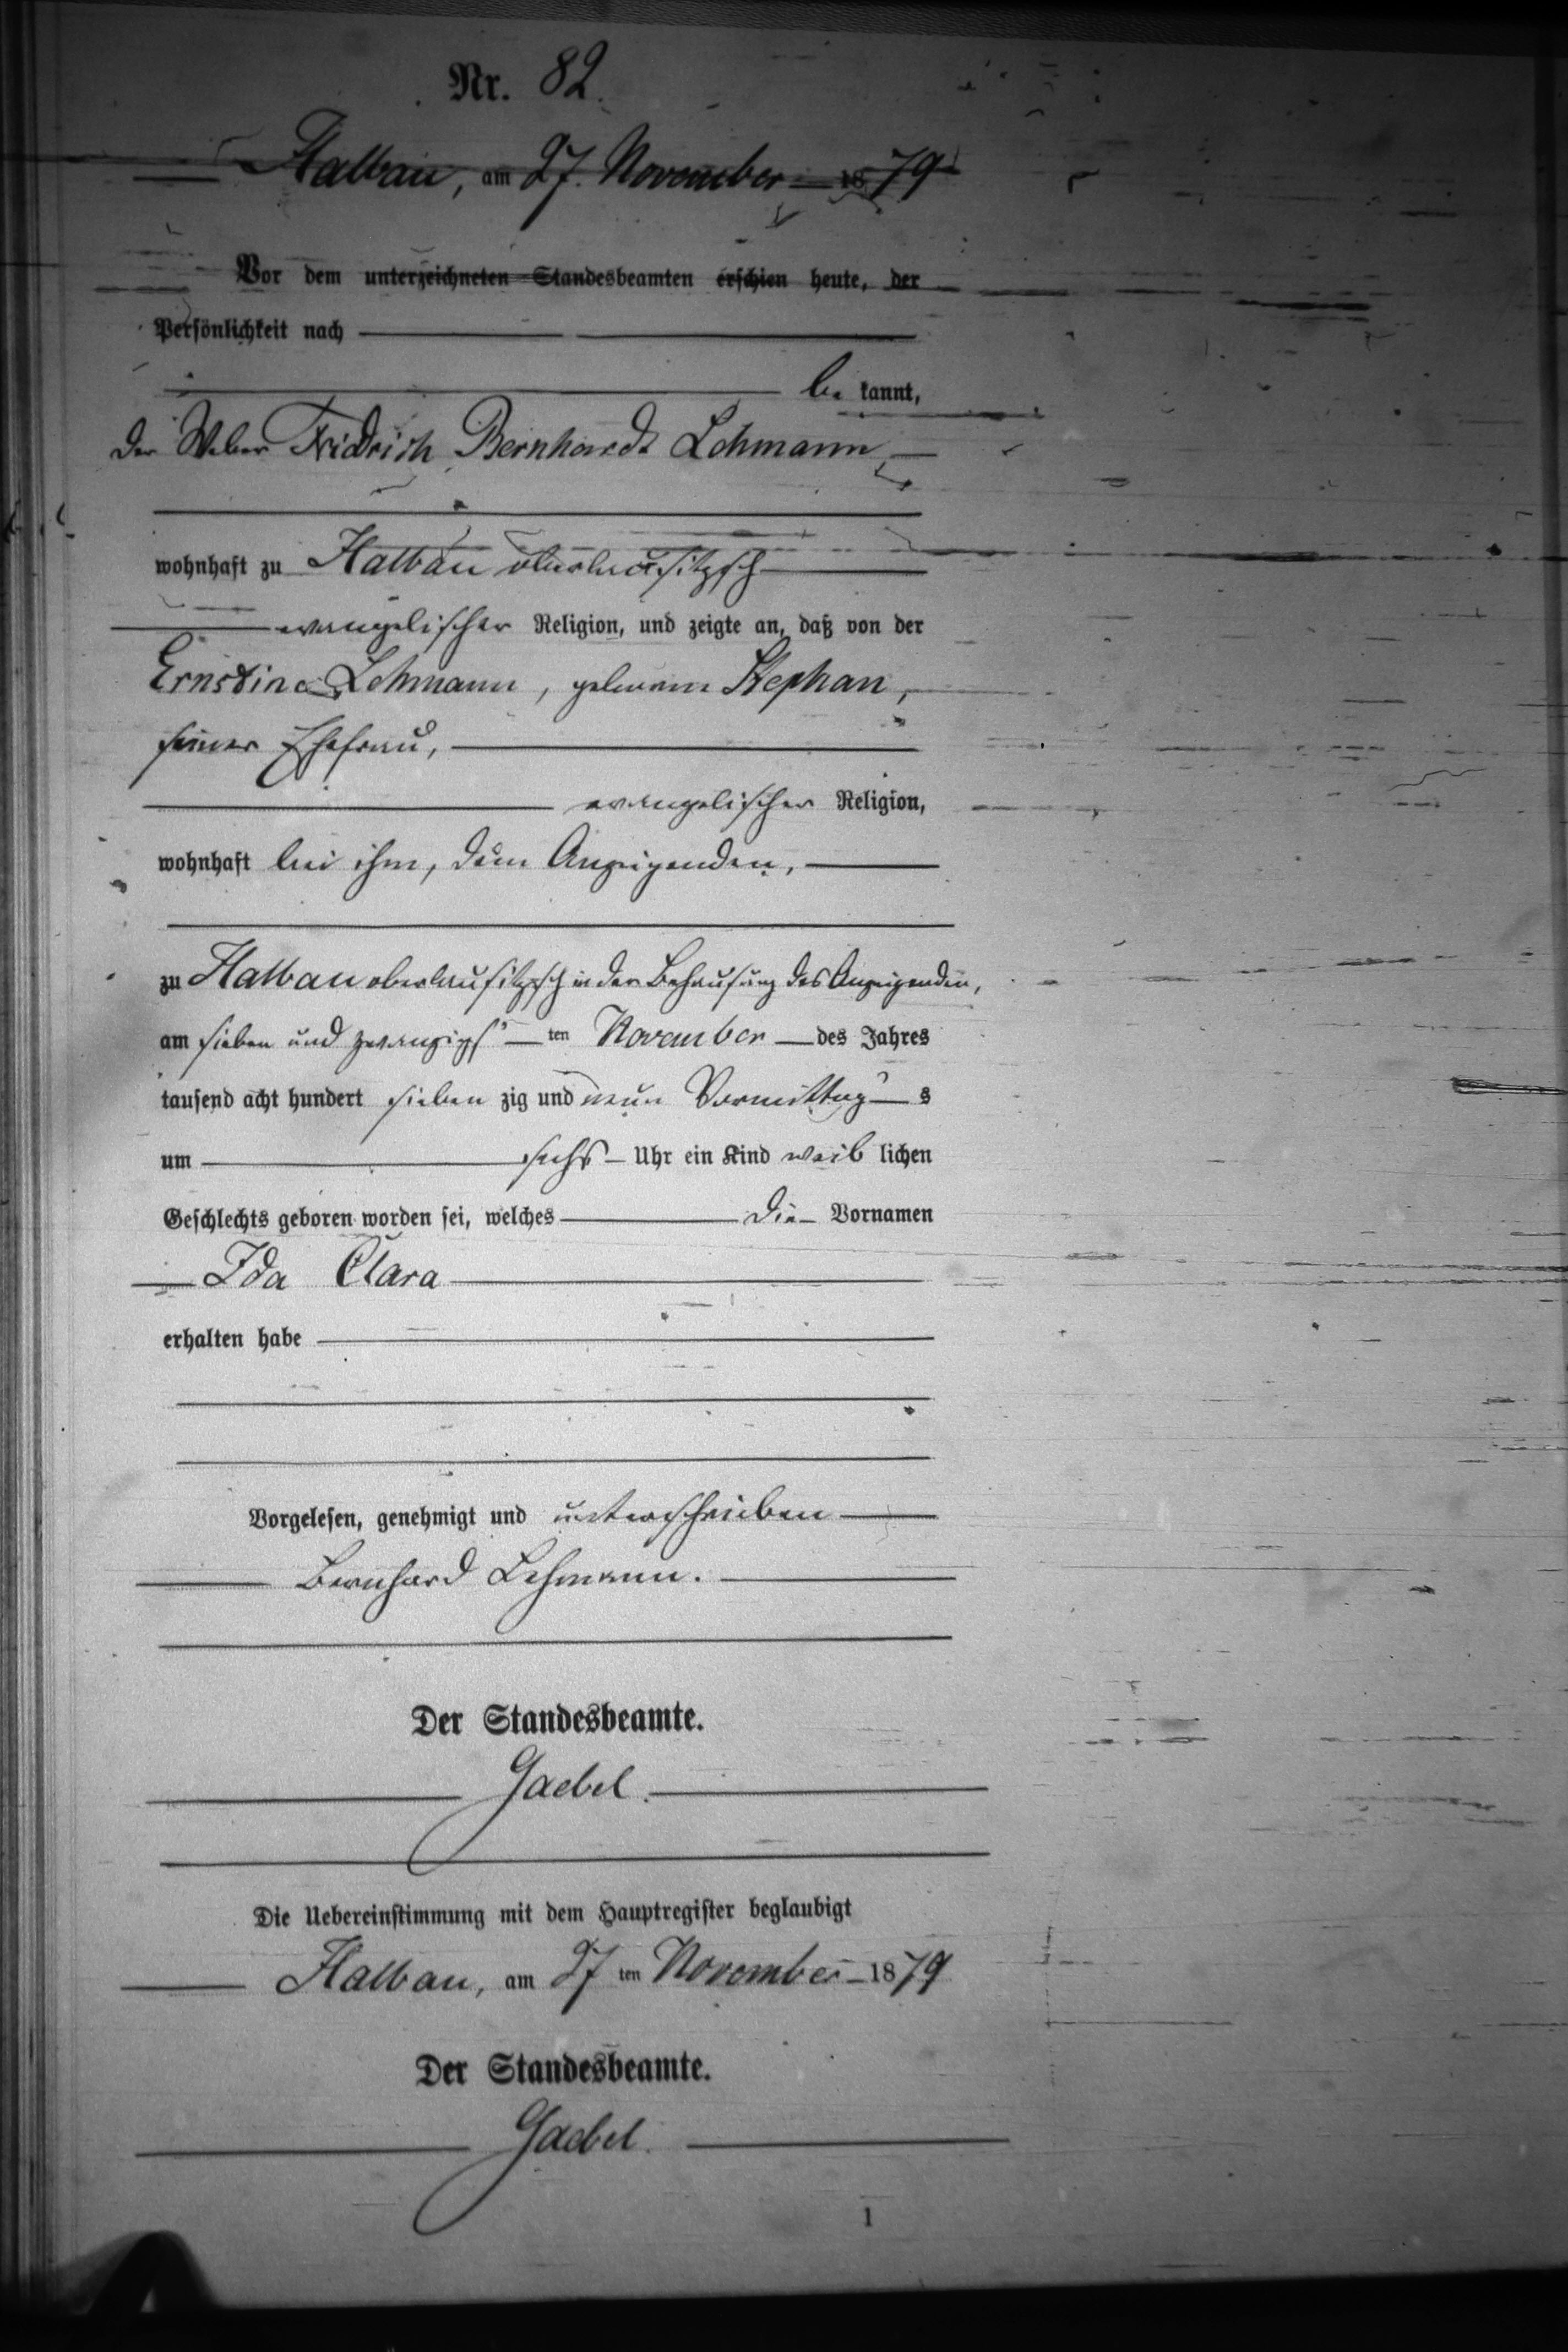 Nr. 82.
Halbau, am 27. November 1879
Vor dem unterzeichneten Standesbeamten erschien heute, der
Persönlichkeit nach
be kannt,
der Weber Friedrich Bernhardt Lehmann,
wohnhaft zu Halbau oberlausitzsch
evangelischer Religion, und zeigte an, daß von der
Ernstine Lehmann, geborene Stephan,
seiner Ehefrau,
evangelischer Religion,
wohnhaft bei ihm, dem Anzeigenden,
zu Halbau oberlausitzsch in der Behausung des Anzeigenden,
am sieben und zwanzigs ten November des Jahres
tausend acht hundert sieben zig und neun Vormittag s
um sechs Uhr ein Kind weib lichen
Geschlechts geboren worden sei, welches die Vornamen
Ida Clara
erhalten habe
Vorgelesen, genehmigt und unterschrieben
Bernhard Lehmann.
Der Standesbeamte.
Gaebel.
Die Uebereinstimmung mit dem Hauptregister beglaubigt
Halbau, am 27 ten November 1879
Der Standesbeamte.
Gaebel.
1